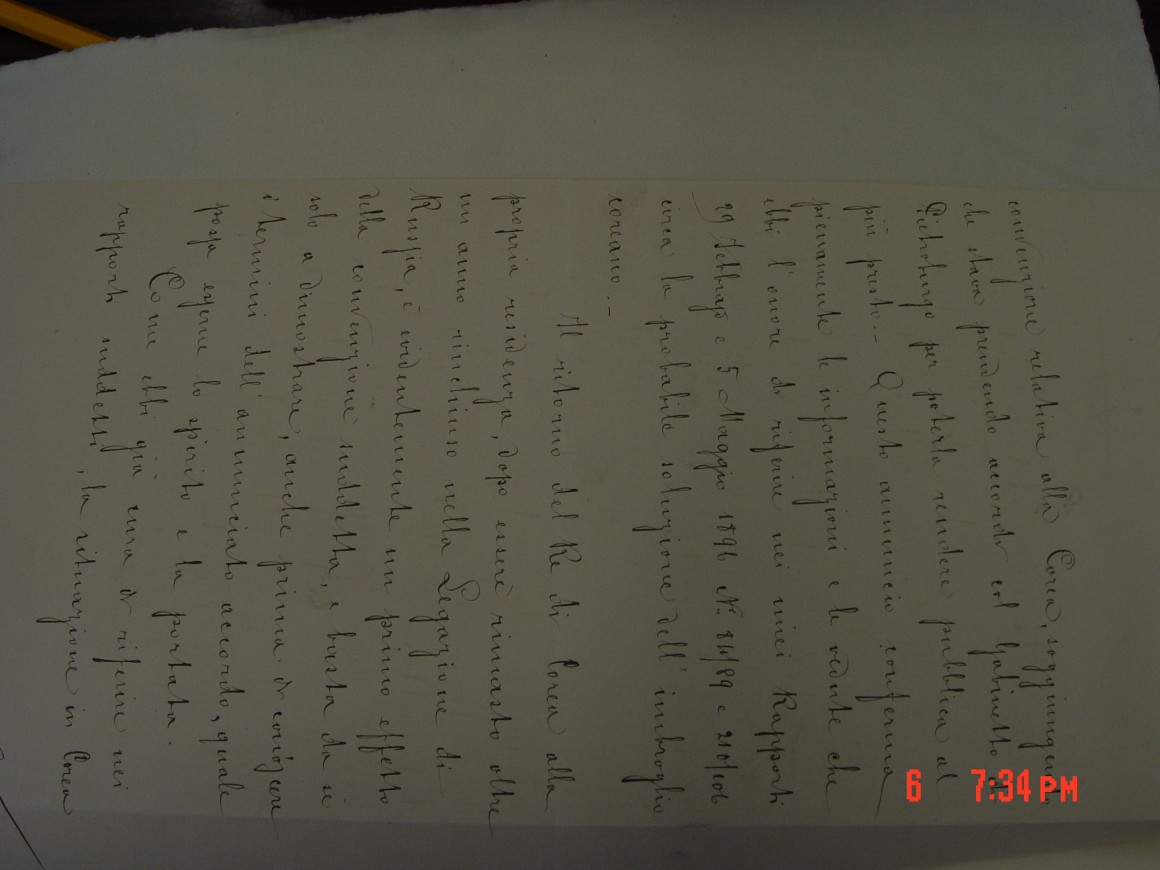 convenzione relativa alla Corea, soggiungendo
che stava prendendo accordi col Gabinetto di
Pietroburgo per poterla rendere pubblica al
più presto. _ Questo annuncio conferma
pienamente le informazioni e le vedute che
ebbi l'onore di riferire nei miei Rapporti
29 Febbrajo e 5 Maggio 1896 N. 84/89 e 210/106
circa la probabile soluzione dell'imbroglio
coreano. _
Il ritorno del Re di Corea alla
propria residenza, dopo essere rimasto oltre
un anno rinchiuso nella Legazione di
Russia, è evidentemente un primo effetto
della convenzione suddetta, e basta da sè
solo a dimostrare, anche prima di conoscere
i termini dell'annunciato accordo, quale
possa esserne lo spirito e la portata.
Come ebbi già cura di riferire nei
rapporti suddetti, la situazione in Corea
6 7:34 PM